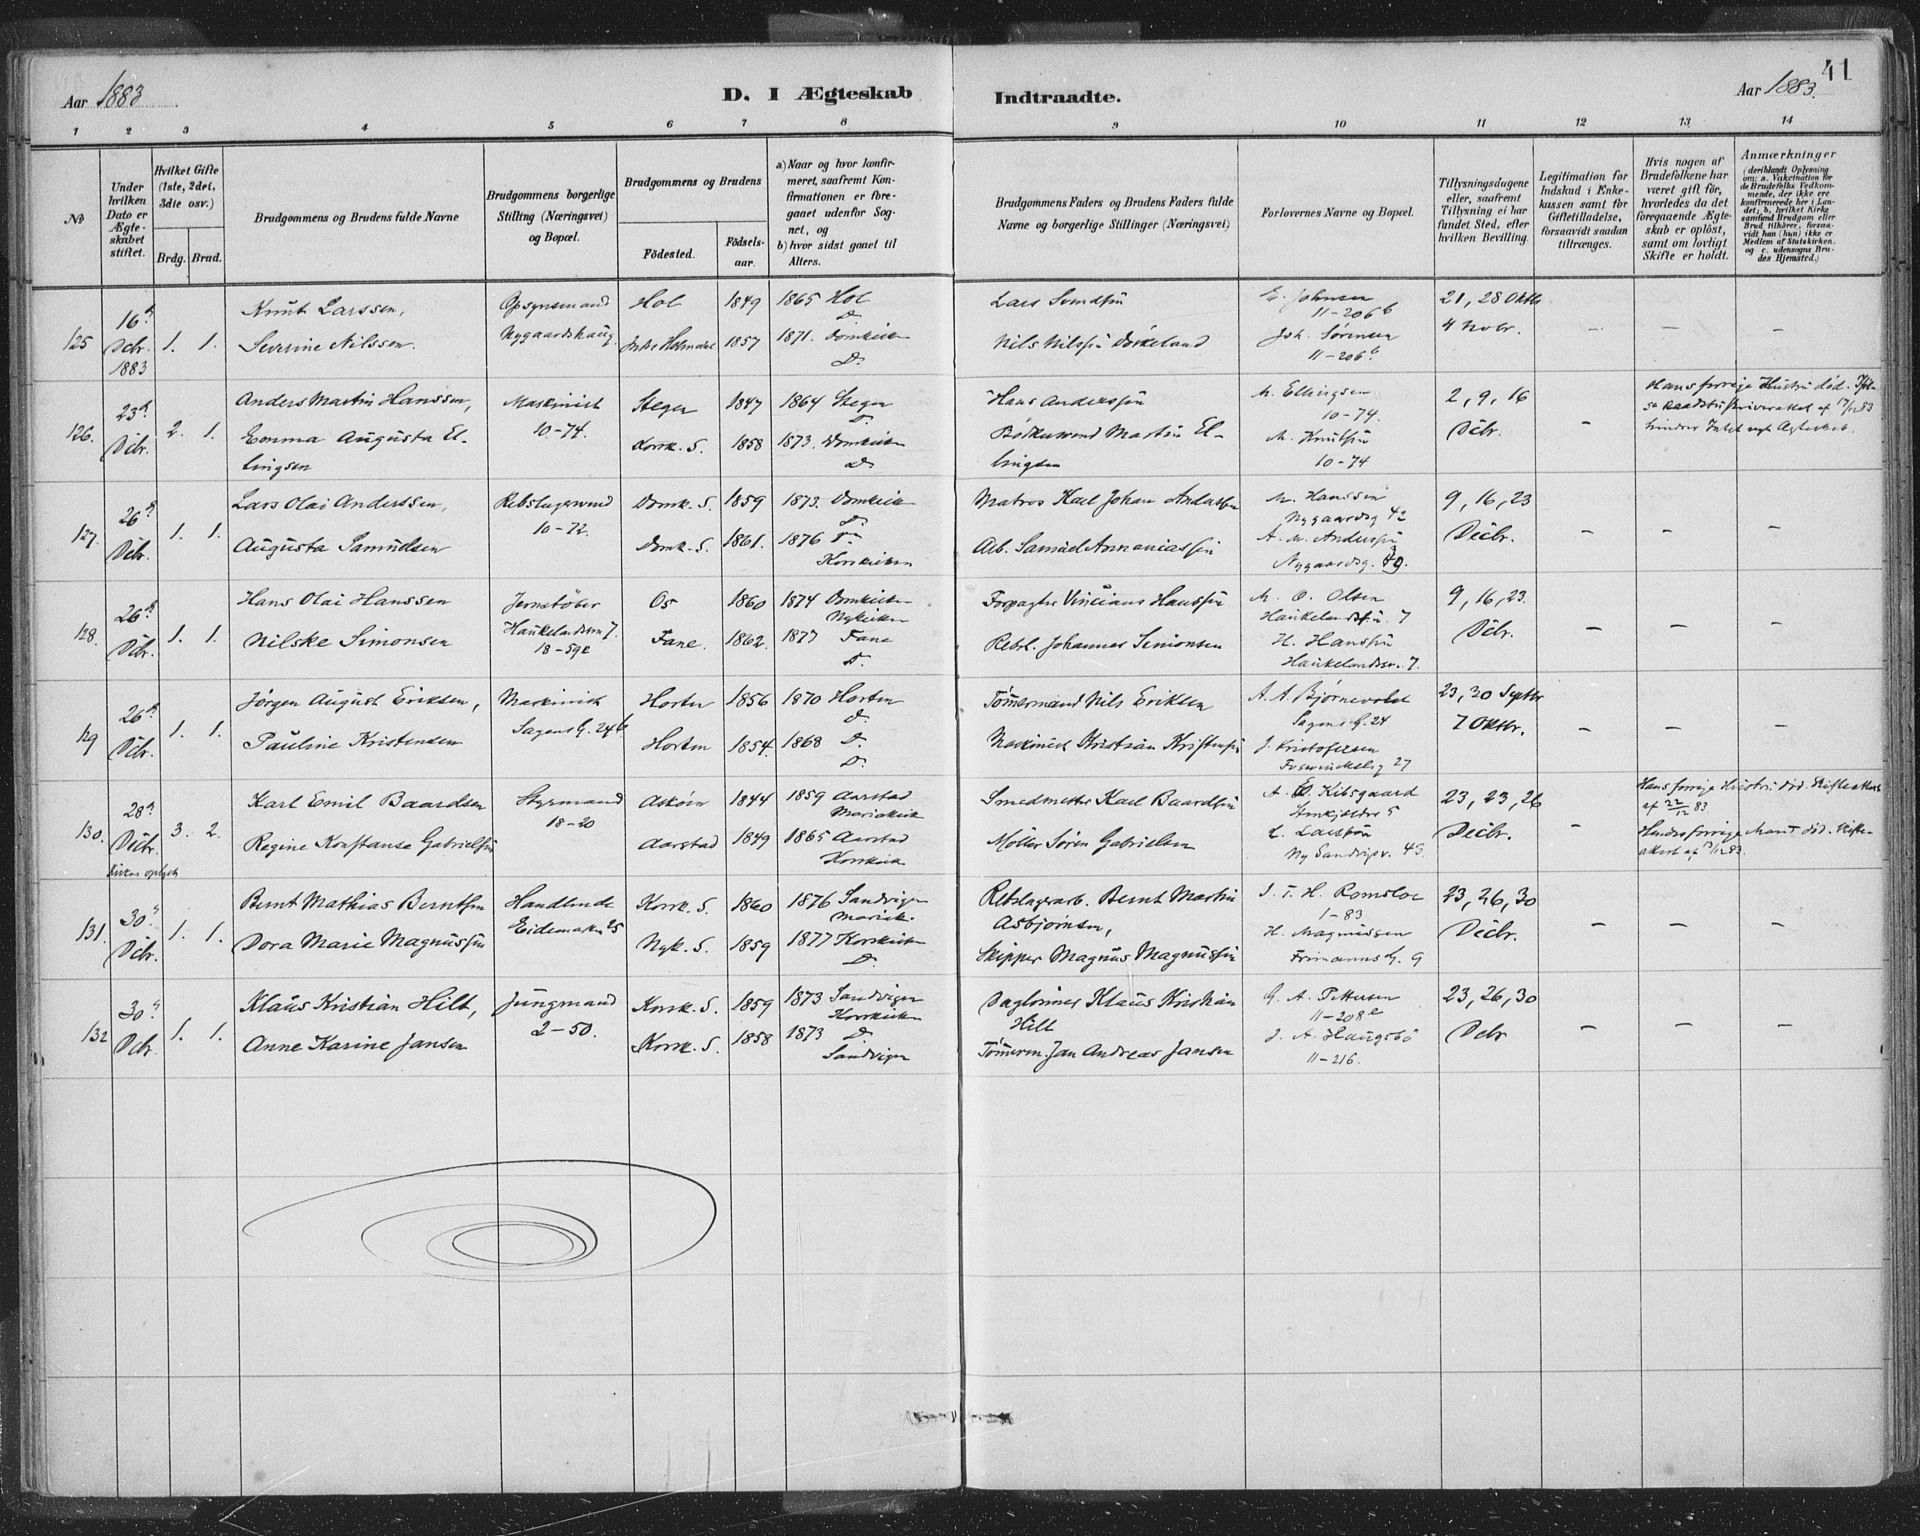 41
Aar 1883
D. I Ægteskab
Indtraadte.
Aar 1883.
1 2 3 4 5 6 7 8 9 10 11 12 13 14
No
Under hvilken Dato er Ægteskabet stiftet.
Hvilket Gifte (1ste, 2det, 3die osv.)
Brdg. Brud.
Brudgommens og Brudens fulde Navne
Brudgommens borgerlige Stilling (Næringsvei) og Bopæl.
Brudgommens og Brudens
Födested.
Födselsaar.
a) Naar og hvor konfirmeret, saafremt Konfirmationen er foregaaet udenfor Sognet, og
b) hvor sidst gaaet til Alters.
Brudgommens Faders og Brudens Faders fulde Navne og borgerlige Stillinger (Næringsvei)
Forlovernes Navne og Bopæl.
Tillysningsdagene eller, saafremt Tillysning ei har fundet Sted, efter hvilken Bevilling.
Legitimation for Indskud i Enkekassen samt for Giftetilladelse, forsaavidt saadan tiltrænges.
Hvis nogen af Brudefolkene har været gift för, hvorledes da det foregaaende Ægteskab er oplöst, samt om lovligt Skifte er holdt.
Anmærkninger (deriblandt Oplysning om: a. Vakcination for de Brudefolks Vedkommende, der ikke ere konfirmerede her i Landet; b. hvilket Kirkesamfund Brudgom eller Brud tilhörer, forsaavidt han (hun) ikke er Medlem af Statskirken. og c. udensogns Brudes Hjemsted.)
125 16de Dcbr. 1883 1. 1.
Knut Larssen, Opsynsmand Hol 1849 1865 Hol D. Lars Svendsen E. Johnsen 11-206b 21, 28 Oktb
Severine Nilssen. Nygaardshaug 1857 1871. Domkirken D. Nils Nilssen Joh. Sørensen 11-206b 4 Nobr. - - -
126. 23de Dcbr. 2. 1.
Anders Martin Hanssen, Maskinist Steger 1847 1864 Steger D. Hans Anderssen M. Ellingsen 10-74. 2, 9, 16 Hans forrige Hustru død.
Emma Augusta Ellingsen 10-74. Korsk. S. 1858 1873. Domkirken D. Martin Ellingsen M. Knutsen 10-74 Dcbr. -
127. 26de Dcbr. 1. 1.
Lars Olai Anderssen, Rebslagersvend Domk. S. 1859 1873. Domkirken D. Matros Karl Johan Anderssen M. Hanssen Nygaardsg 42 9, 16, 23
Augusta Samuelsen 10-72. Domk. S. 1861. 1876 Korskirken Arb. Samuel Annaniassen A. M. Anderssen Nygaardsg. Decbr. - - -
128. 26de Dcbr. 1. 1.
Hans Olai Hanssen Jernstøber Os 1860 1874 Domkirken Nykirken Forpagter Hanssen M. O. Olsen 7 9, 16, 23.
Nilske Simonsen Haukelandsvn 7. 18-59e Fane. 1862. 1877 Fane D. Rebsl. Johannes Simonsen H. Hanssen Haukelandsv. 7. Dcbr. - - -
129 26de Dcbr. 1. 1.
Jørgen August Eriksen, Maskinist Horten 1856 1870 Horten D. Tømmermand Nils Eriksen A. A. Bjørnevold Sagens G. 24 23, 30 Septbr
Pauline Kristensen Sagens G. 24b Horten 1854. 1868 D. D. Maskinist Kristian Kristensen J. Kristofersen 27 7 Oktbr. - - -
130. 28de Decbr. 3. 2.
Karl Emil Baardsen Styrmand Askøen 1844 1859 Aarstad Mariakirk Smedmester Karl Baardsen A. Kibsgaard 5 23, 23, 26 Hans forrige Hustru død. Skifteakt af 22/12 83
Regine Konstanse Gabrielsen 18-20 Aarstad 1849 1865 Aarstad Korskirk Møller Søren Gabrielsen L. Larssen Ny Sandvigsv. 43. Decbr. - Hendes forrige Mand død.
131. 30te Dcbr. 1. 1.
Bernt Mathias Berntsen Handlende Korsk. S. 1860 1876 Sandviken Mariak. Rebslagerarb. Bernt Martin Asbjørnsen, J. T. H. Romsloe 1-83 23, 26, 30
Dora Marie Magnussen Nyk. S. 1859 1877 Korskirken D. Skipper Magnus Magnussen H. Magnussen Frimanns G. 9 Decbr. - - -
132 30te Dcbr. 1. 1.
Klaus Kristian Hilt, Jungmand Korsk. S. 1859 1873 Sandviken Korskirken Daglønner Klaus Kristian Hilt G. A. Pettersen 11-208e 23, 26, 30
Anne Karine Jansen 2-50. Korsk. S. 1858 1873 D. Sandviken Tømmerm. Jan Andreas Jansen J. A. Haugsbø 11-216. Dcbr - - -